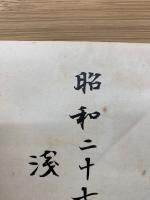 昭和二十
浅